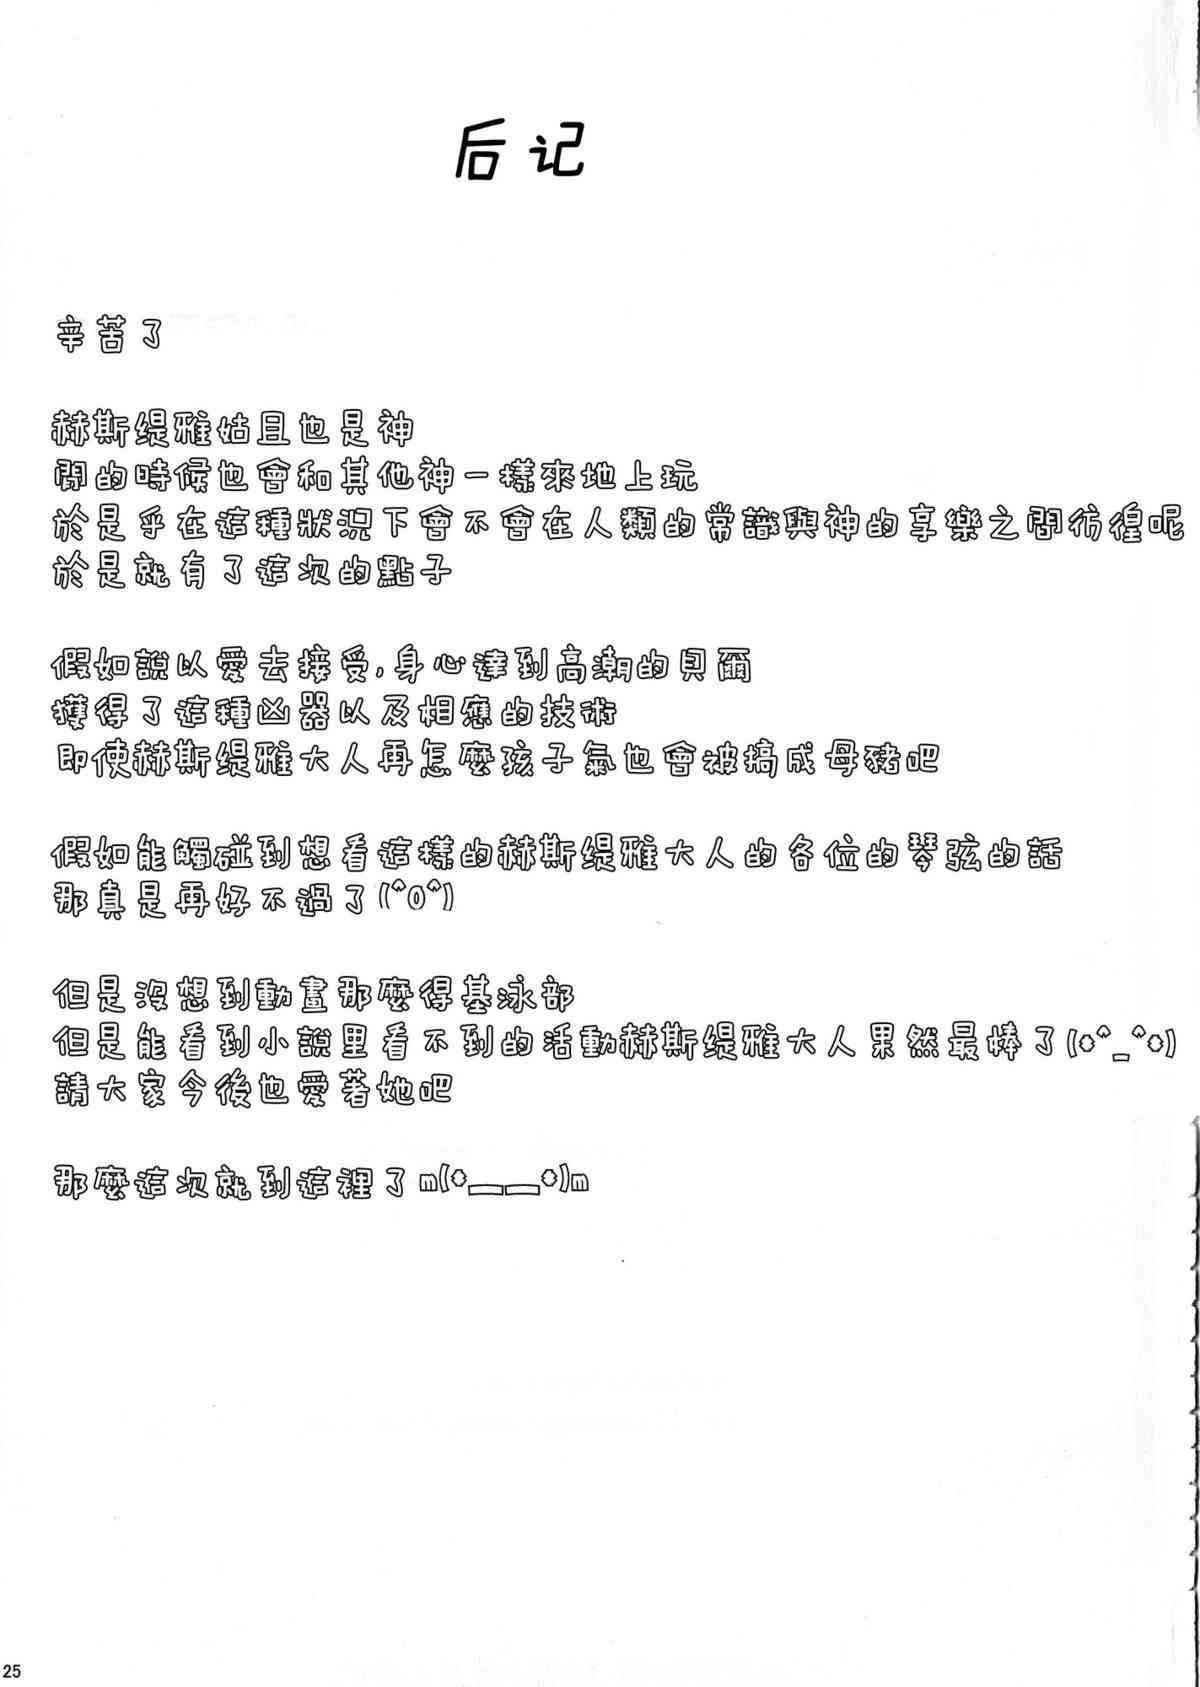 后记
辛苦了
赫斯缇雅姑且也是神
閒的時候也會和其他神一樣來地上玩
於是乎在這種狀況下會不會在人類的常識與神的享樂之間彷徨呢
於是就有了這次的點子
假如說以愛去接受,身心達到高潮的貝爾
獲得了這種凶器以及相應的技術
即使赫斯缇雅大人再怎麼孩子氣也會被搞成母豬吧
假如能觸碰到想看這樣的赫斯缇雅大人的各位的琴弦的話
那真是再好不過了(^O^)
但是沒想到動畫那麼得基泳部
但是能看到小說里看不到的活動赫斯缇雅大人果然最棒了(*^_^*)
請大家今後也愛著她吧
那麼這次就到這裡了m(*__*)m
25